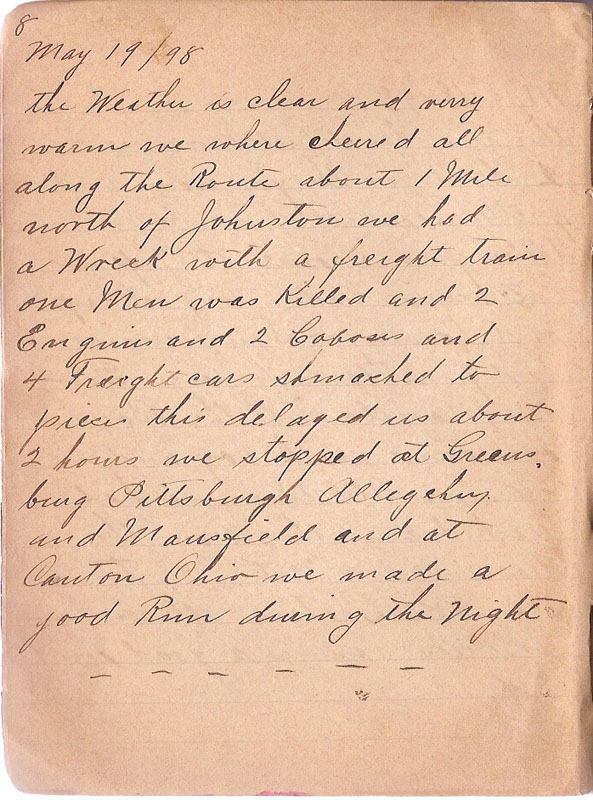 8
May 19/98
the Weather is clear and verry
warm we where cheered all
along the Route about 1 Mile
north of Johnston we had
a Wreck with a freight train
one Men was Killed and 2
Engines and 2 Cabooses and
4 Freight cars smached to
pieces this delayed us about
2 hours we stopped at Greens,
burg Pittsburgh Allegehny
and Mansfield and at
Canton Ohio we made a
good Run during the Night